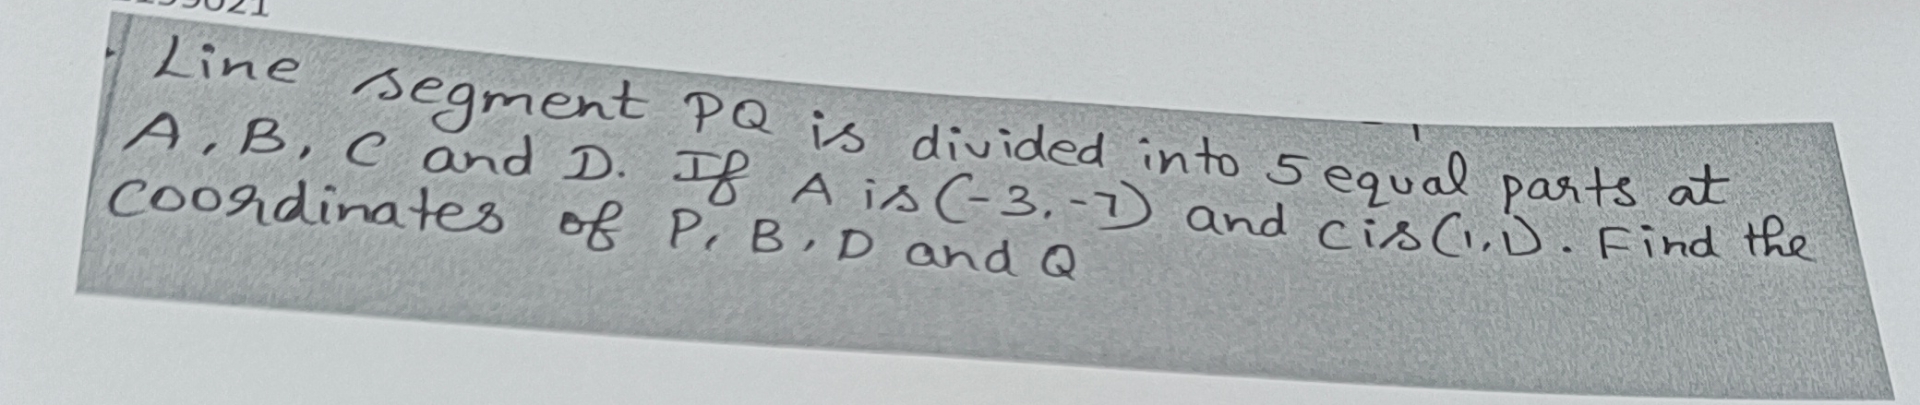 Line segment PQ is divided into 5 equal parts at
A, B, C and D. If A is (-3,-7) and C is (1,1). Find the
coordinates of P, B, D and Q